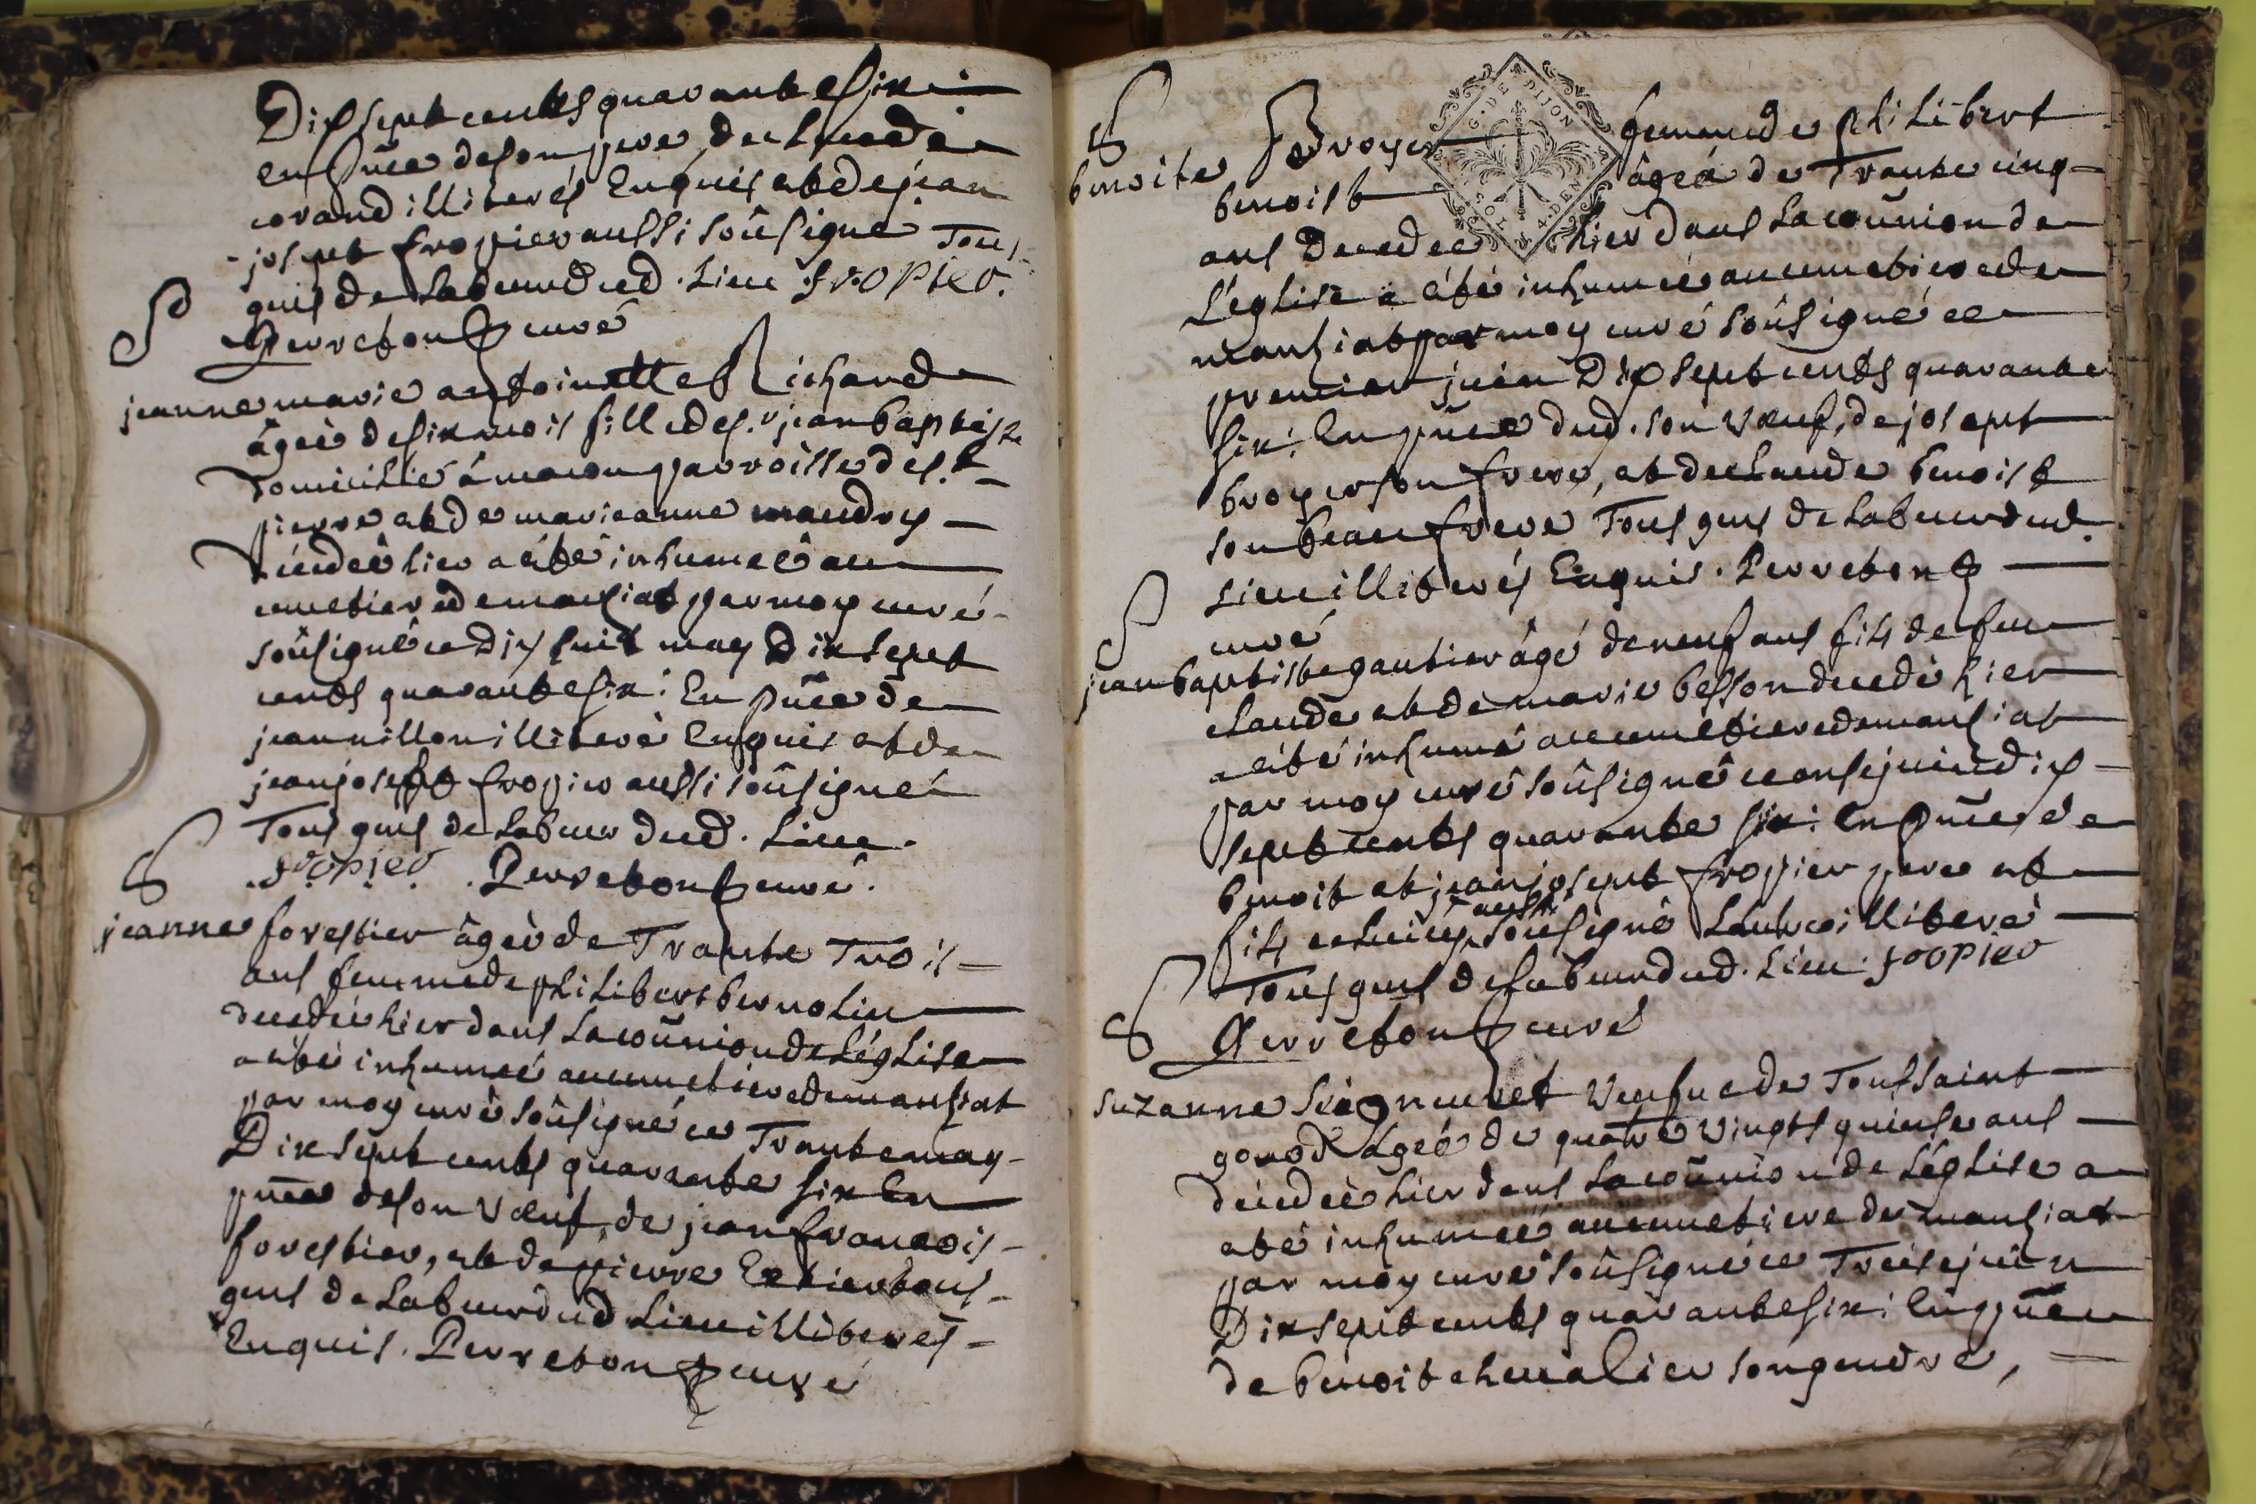 Dix sept cents quarante six:
en pñce de son pere, de claude
corand illiterés Enquis et de jean
joseph fropier aussi soûsigné Tous
gens de Labeur dud. Lieu fropier.
Perreton curé
S
jeanne marie antoinette Richard
âgée de six mois fille de s.r jean baptiste
domicilié à macon parroisse de s.t
pierre et de marieanne maudry
décédée hier a été inhumée au
cemetiere de manziat par moy curé
soûsigné ce dix huit may Dix sept
cents quarante six: En pñce de
jean nillon illiteré Enquis et de
jean joseph fropier aussi soûsigné
Tous gens de Labeur dud. Lieu.
fropier. Perreton curé.
S
jeanne forestier âgée de Trante Trois
ans femme de philibert bernolin
decedée hier dans La coñion de L'église
a été inhumée au cemetiere de manziat
par moy curé soûsigné ce Trante may
Dix sept cents quarante six En
pñce de son Vœuf, de jean francois
forestier, et de pierre tous
gens de Labeur dud Lieu illiterés
Enquis. Perreton curé
G. DE DIJON
SOL. 4. DEN
S
benoite Broyer femme de philibert
benoist âgée de Trante cinq
ans Decedée hier dans La coñion de
L'église a été inhumée au cemetiere de
manziat par moy curé soûsigné ce
premier juin Dix sept cents quarante
six: En pñce dud. son Vœuf, de joseph
broyer son frere, et de claude benoist
son beaufrere Tous gens de Labeur dud.
Lieu illiterés Enquis. Perreton
curé
S
jean baptiste gautier âgé de neuf ans fils de feu
claude et de marie besson decedé hier
a été inhumé au cemetiere de manziat
par moy curé soûsigné ce onse juin dix
sept cents quarante six: En pñce de
benoit et jean joseph fropier pere et
fils celuicy aussi soûsigné L'autre illiteré
Tous gens de Labeur dud. Lieu. fropier
Perreton curé
S
suzanne Seigneuret Veufue de Toussaint
gonod âgée de quatre vingts quinse ans
décedée hier dans La coñion de L'église a
eté inhumée au cemetiere de manziat
par moy curé soûsigné ce Treise juin
Dix sept cents quarante six: En pñce
de benoit chevalier son gendre,